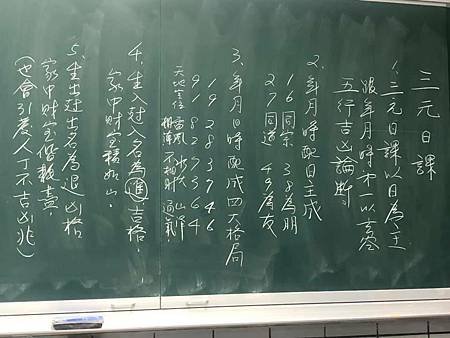 三元日課
1. 三元日課以日為主
跟年月時才以言
五行吉凶論斷
2. 年月時配日主成
16同宗 38為朋
27同道 49為友
3. 年月日時配成四大格局
19 28 37 46
91 82 73 64
天地定位 雷風 水火不相射 山澤通氣
4. 生入尅入名為進 吉格
家中財宝積如山
5. 生出尅出名為退 凶格
家中財宝皆
(也會引发人丁不吉凶兆)